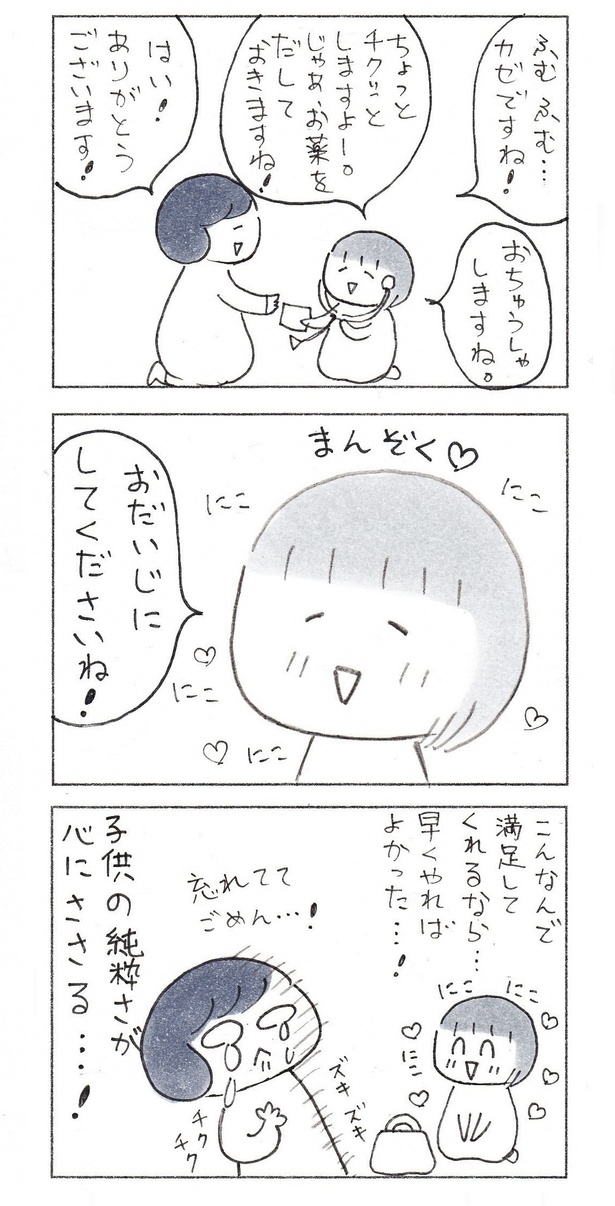 ふむふむ…
カゼですね!
おちゅうしゃ
しますね。
ちょっと
チクッと
しますよー。
じゃあ、お薬を
だして
おきますね!
はい!
ありがとう
ございます!
まんぞく♡
にこ
にこ
おだいじに
してくださいね!
にこ
にこ
こんなんで
満足して
くれるなら…
早くやれば
よかった…!
にこ
にこ
にこ
忘れてて
ごめん…!
ズキ
ズキ
チク
チク
子供の純粋さが
心にささる…!